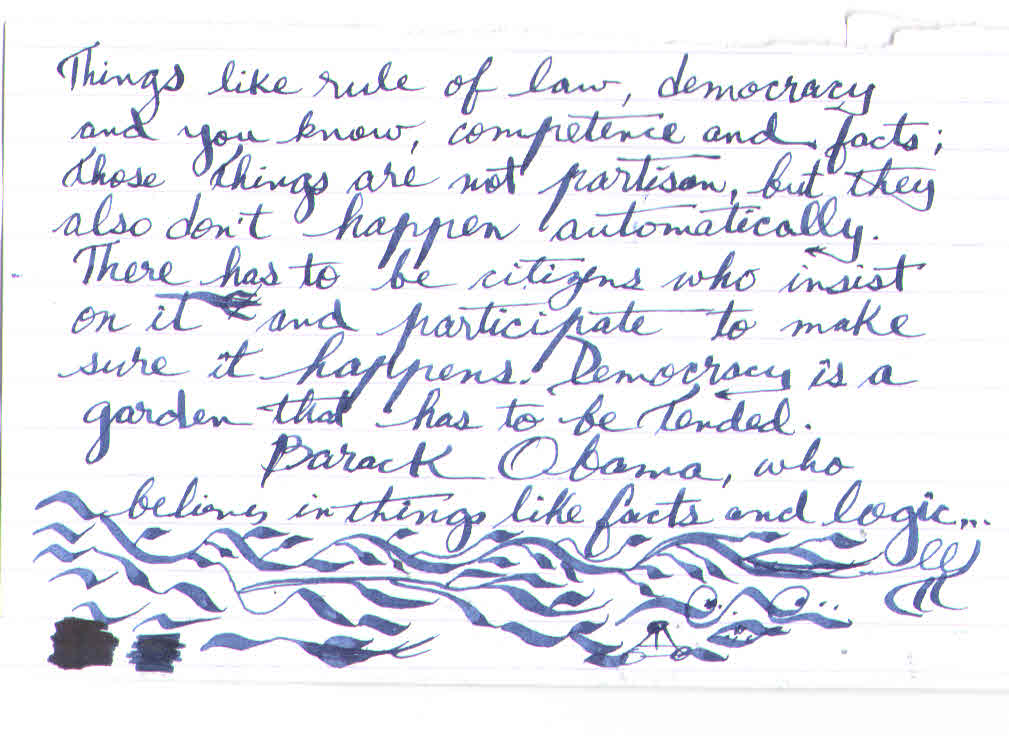 Things like rule of law, democracy
and you know, competence and facts;
those things are not partison, but they
also don't happen automatically.
There has to be citizens who insist
on it and participate to make
sure it happens. Democracy is a
garden that has to be tended.
Barack Obama, who
believes in things like facts and logic...